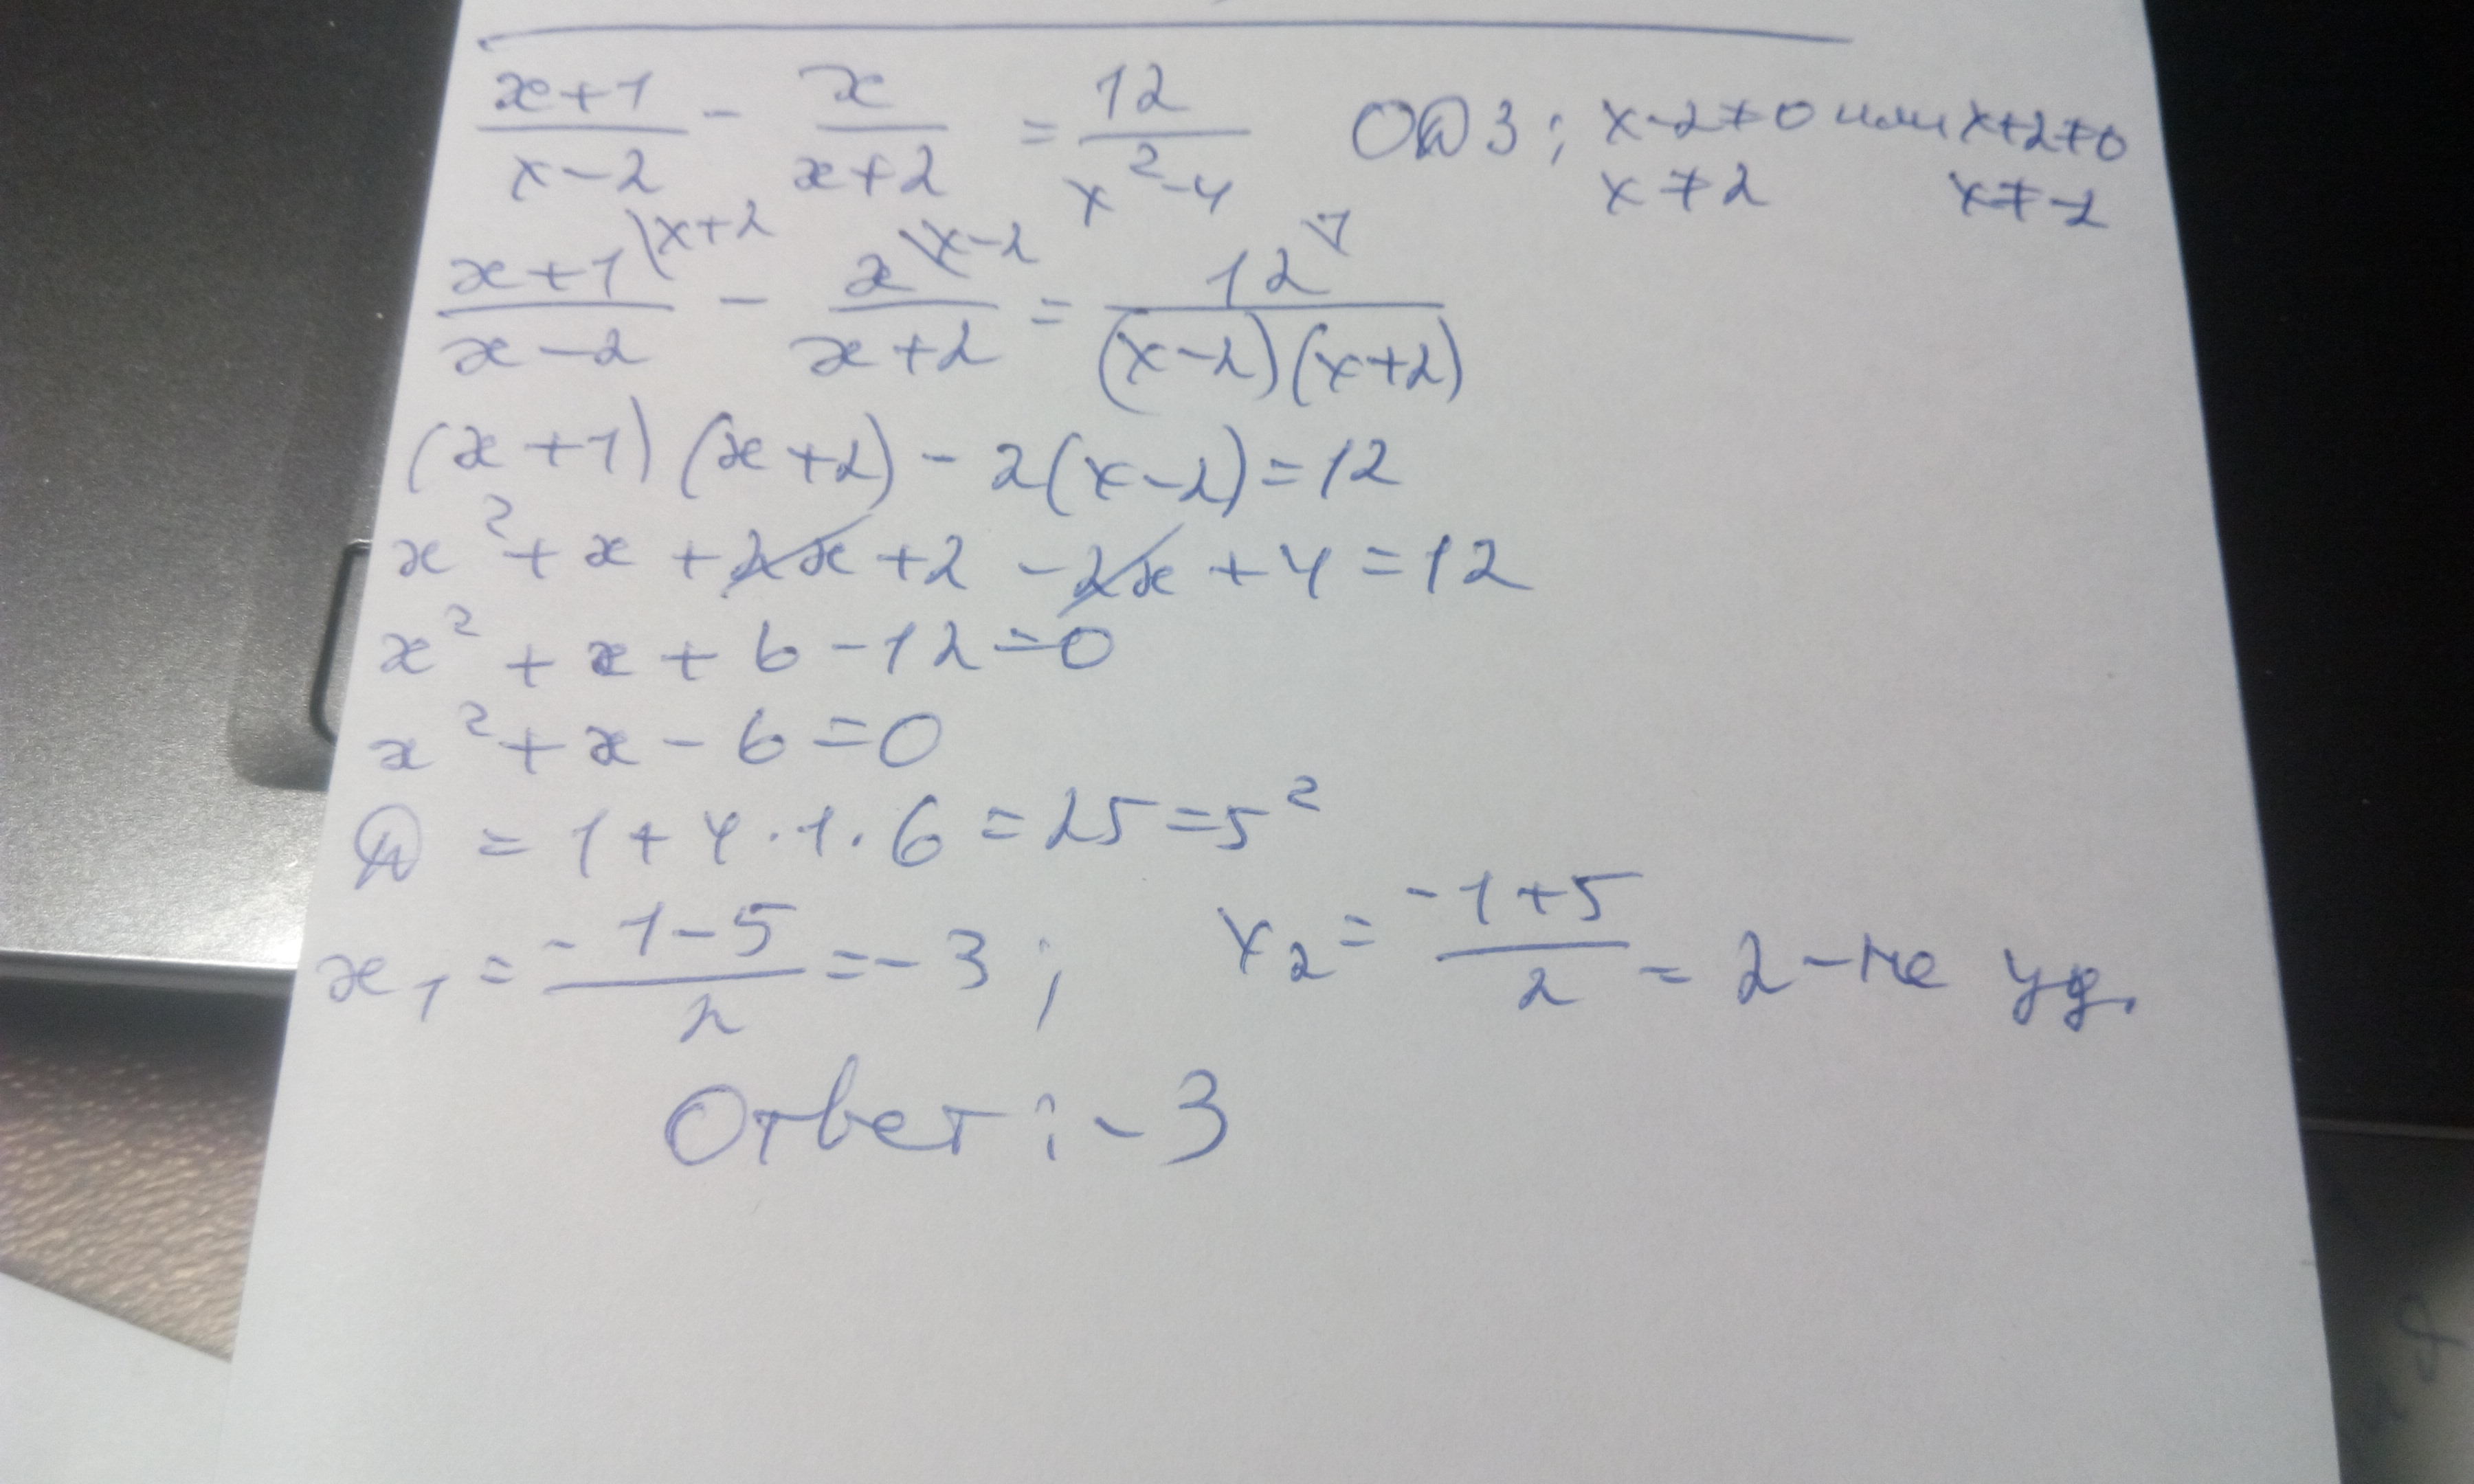 (x+1)/(x-2) - x/(x+2) = 12/(x²-4) ОДЗ; x-2≠0 или x+2≠0
x≠2 x≠-2
(x+1)\x+2/(x-2) - x\x-2/(x+2) = 12\1/((x-2)(x+2))
(x+1)(x+2)-2(x-2)=12
x²+x+2x+2-2x+4=12
x²+x+6-12=0
x²+x-6=0
Д=1+4·1·6=25=5²
x₁=(-1-5)/2=-3; x₂=(-1+5)/2=2-не уд.
Ответ:-3